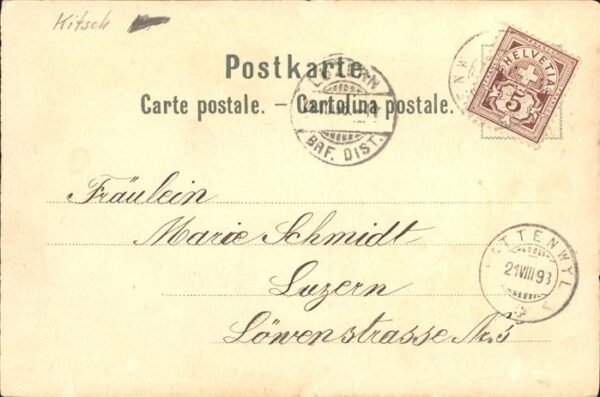 Kitsch
Postkarte.
Carte postale. – Cartolina postale.
HELVETIA
5
LUZERN
BRF. DIST.
Fräulein
Marie Schmidt
Luzern
Löwenstrasse No. 5
TTENWYL
21 VIII 93